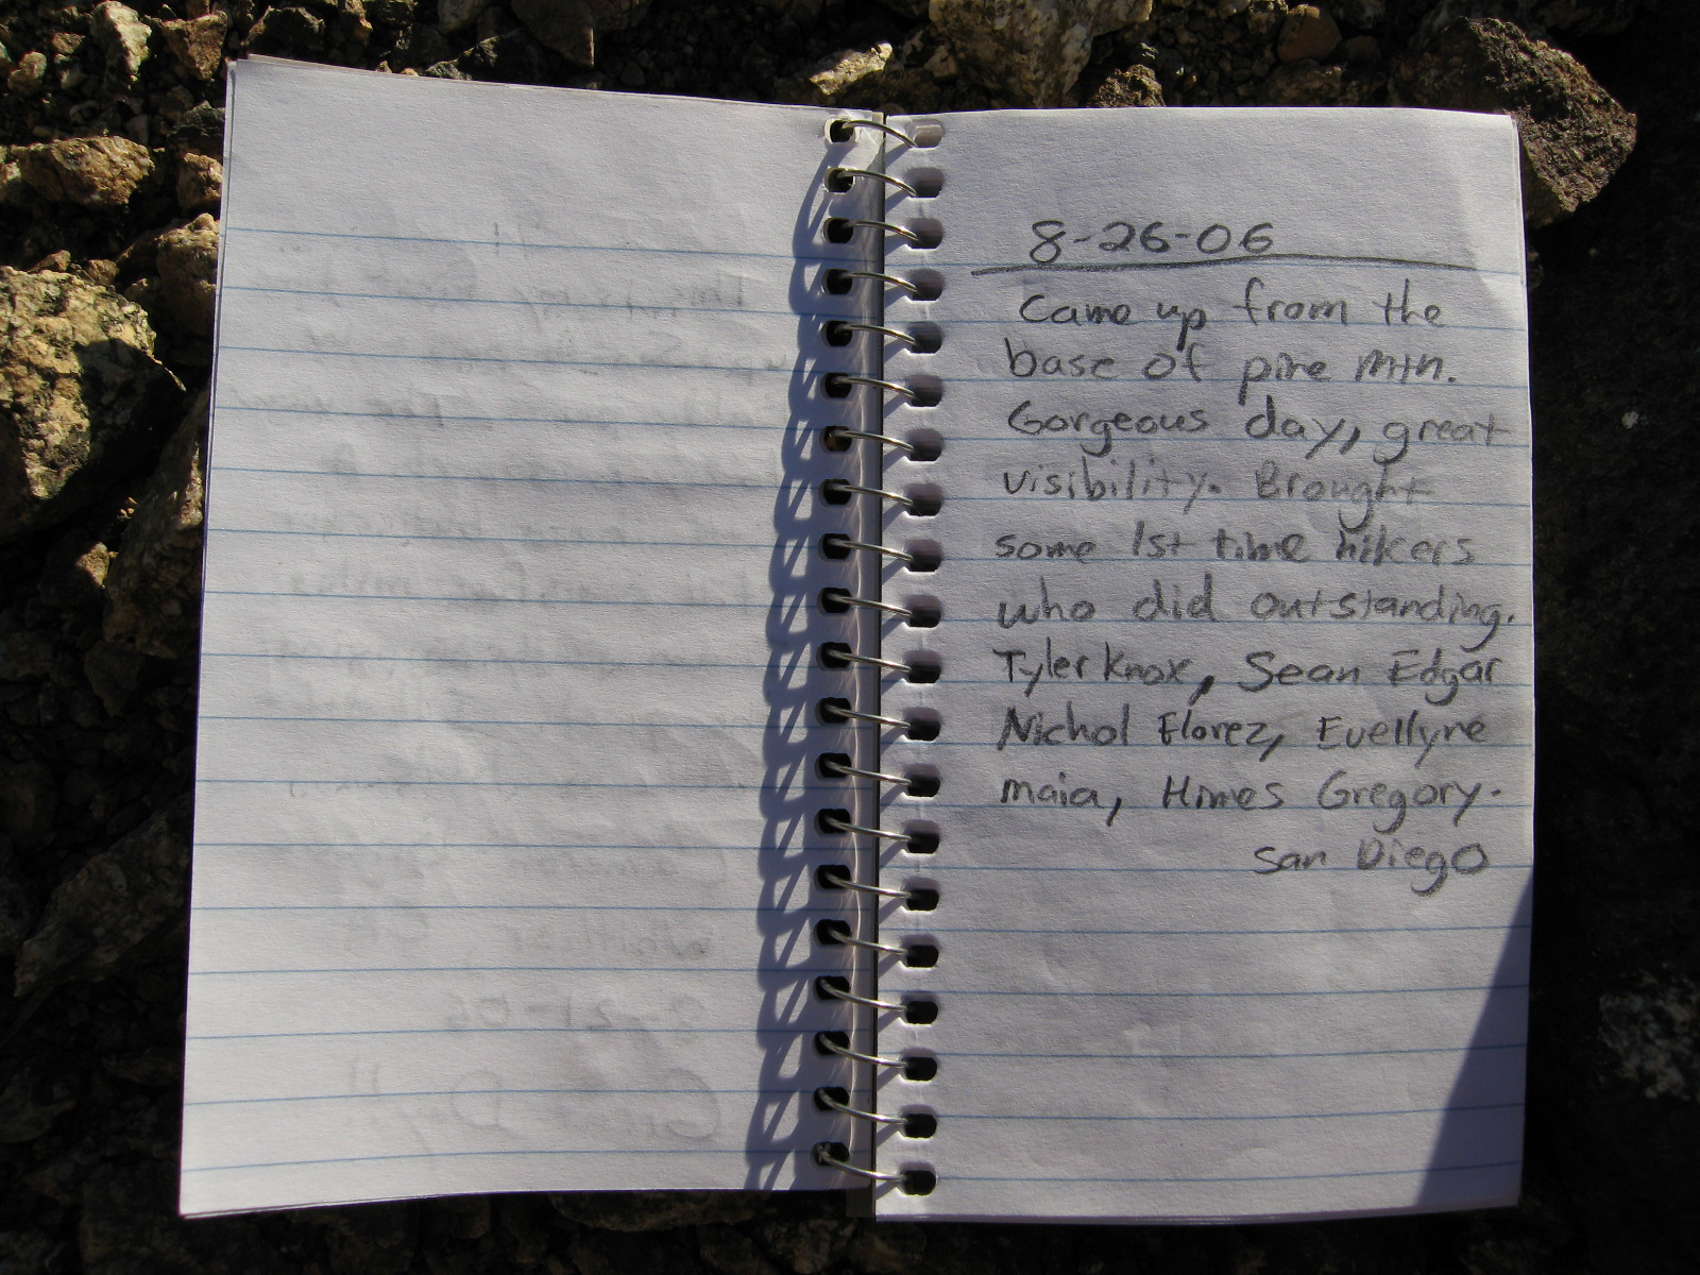 8-26-06
Came up from the
base of pine mtn.
Gorgeous day, great
visibility. Brought
some 1st time hikers
who did outstanding.
Tyler Knox, Sean Edgar
Nichol Florez, Evellyne
maia, Himes Gregory.
San Diego